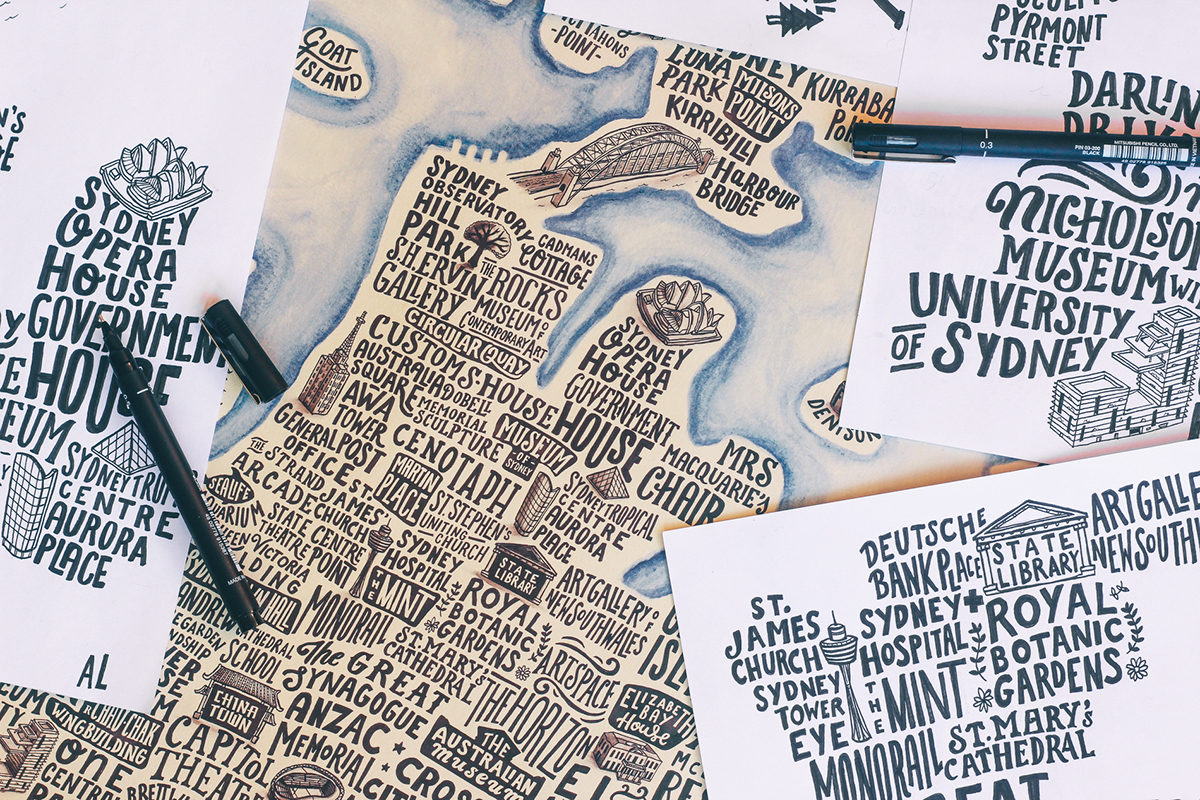 GOAT
ISLAND
-POINT-
LUNA
PARK
SYDNEY
MILSONS
POINT
KURRABA
KIRRIBILI
HARBOUR
BRIDGE
SYDNEY
OBSERVATORY
HILL
PARK
S.H.ERVIN
GALLERY
CADMANS
COTTAGE
THE ROCKS
MUSEUM OF
CONTEMPORARY ART
CIRCULAR QUAY
CUSTOMS HOUSE
AUSTRALIA
SQUARE
DOBELL
MEMORIAL
SCULPTURE
AWA
TOWER
GENERAL POST
OFFICE
CENOTAPH
MUSEUM
OF
SYDNEY
SYDNEY
OPERA
HOUSE
GOVERNMENT
HOUSE
MRS
MACQUARIE'S
CHAIR
THE STRAND
ARCADE
ST JAMES
CHURCH
MARTIN
PLACE
ST STEPHENS
UNITING
CHURCH
SYDNEY TROPICAL
CENTRE
AURORA
PLACE
SEALIFE
STATE
THEATRE
CENTRE
POINT
SYDNEY
HOSPITAL
THE
MINT
STATE
LIBRARY
ART GALLERY OF
NEW SOUTH WALES
ROYAL
BOTANIC
GARDENS
MONORAIL
ST.MARY'S
CATHEDRAL
ARTSPACE
THE GREAT
SYNAGOGUE
THE HORIZON
ELIZABETH
BAY
HOUSE
SCHOOL
CHINA
TOWN
ANZAC
MEMORIAL
THE
AUSTRALIAN
MUSEUM
WING BUILDING
CAPITOL
THEATRE
ONE
CENTRAL
DENISON
SYDNEY
OPERA
HOUSE
GOVERNMEN
HOUSE
SYDNEY TROP
CENTRE
AURORA
PLACE
AL
PYRMONT
STREET
DARLIN
0.3
PIN 03-200
BLACK
MITSUBISHI PENCIL CO., LTD.
NICHOLSON
MUSEUM
UNIVERSITY
OF SYDNEY
DEUTSCHE
BANK PLACE
STATE
LIBRARY
ART GALLE
NEW SOUTH
ST.
JAMES
CHURCH
SYDNEY
HOSPITAL
ROYAL
BOTANIC
GARDENS
SYDNEY
TOWER
EYE
THE
MINT
MONORAIL
ST.MARY'S
CATHEDRAL